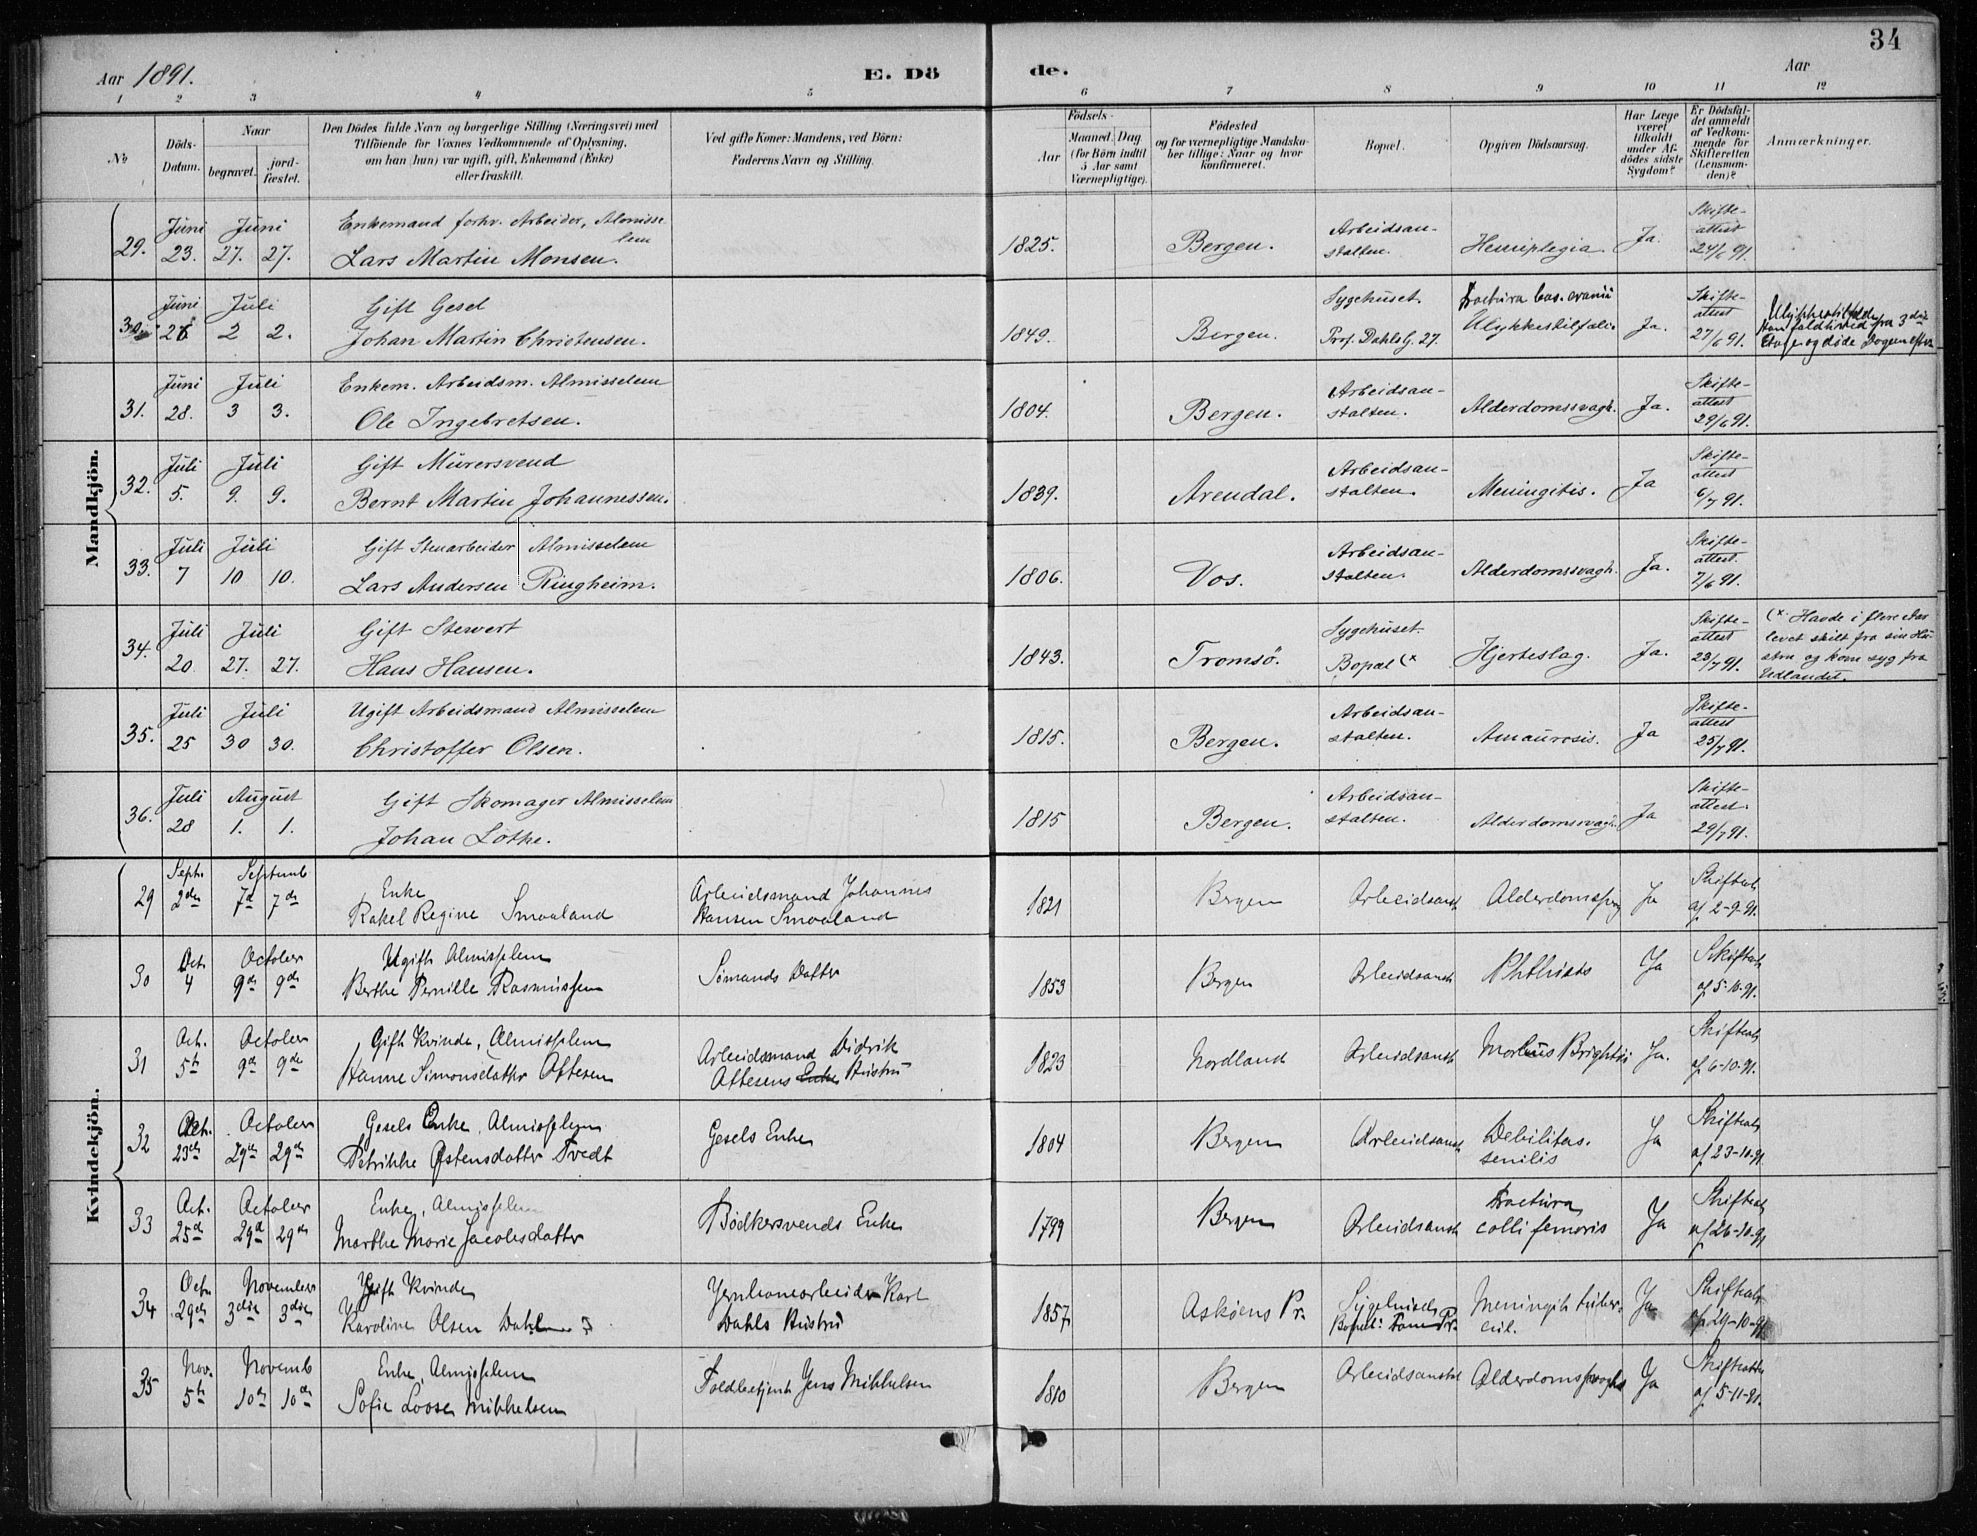 34
Aar 1891. E. Dö de. Aar
1 2 3 4 5 6 7 8 9 10 11 12
No
Döds-Datum.
Naar
begravet. jord-fæstet.
Den Dödes fulde Navn og borgerlige Stilling (Næringsvei) med
Tilföiende for Voxnes Vedkommende af Oplysning,
om han (hun) var ugift, gift, Enkemand (Enke)
eller fraskilt.
Ved gifte Koner: Mandens, ved Börn:
Faderens Navn og Stilling.
Födsels-
Aar
Maaned. Dag.
(for Börn indtil
5 Aar samt
Værnepligtige).
Födested
og for værnepligtige Mandska-
ber tillige: Naar og hvor
konfirmeret.
Bopæl.
Opgiven Dödsaarsag.
Har Læge
været
tilkaldt
under Af-
dödes sidste
Sygdom?
Er Dödsfal-
det anmeldt
af Vedkom-
mende for
Skifteretten
(Lensman-
den)?
Anmærkninger.
Mandkjön.
29. Juni 23. Juni 27. 27. Enkemand forhv. Arbeider, Almisse-
lem
Lars Martin Monsen. 1825. Bergen. Arbeidsan-
stalten. Hemiplegia. Ja. Skifte-
attest
24/6 91.
30 Juni 26 Juli 2 2. Gift Gesel
Johan Martin Christensen. 1849. Bergen. Sygehuset.
Prof. Dahls G. 27. Fractura bas. cranii
Ulykkestilfælde Ja. Skifte-
attest
27/6 91. Ulykkestilfælde
Han faldt ned fra 3die
Etage og døde Dagen efter
31. Juni 28. Juli 3 3. Enkem. Arbeidsm. Almisselem
Ole Ingebretsen. 1804. Bergen. Arbeidsan-
stalten. Alderdomssvagh. Ja. Skifte-
attest
29/6 91.
32. Juli 5. Juli 9. 9. Gift Murersvend
Bernt Martin Johannessen. 1839. Arendal. Arbeidsan-
stalten. Meningitis. Ja Skifte-
attest
6/7 91.
33. Juli 7 Juli 10 10. Gift Stenarbeider Almisselem
Lars Andersen Ringheim. 1806. Vos. Arbeidsan-
stalten. Alderdomssvagh. Ja. Skifte-
attest.
7/6 91.
34. Juli 20. Juli 27. 27. Gift Stewert
Hans Hansen. 1843. Tromsö. Sygehuset.
Bopæl (x Hjerteslag. Ja. Skifte-
attest
23/7 91. (x. Havde i flere Aar
levet skilt fra sin Hu-
stru og kom syg fra
Udlandet.
35. Juli 25 Juli 30 30. Ugift Arbeidsmand Almisselem
Christoffer Olsen. 1815. Bergen. Arbeidsan-
stalten. Amaurosis. Ja Skifte-
attest
25/7 91.
36. Juli 28 August 1. 1. Gift Skomager Almisselem
Johan Lothe. 1815 Bergen. Arbeidsan-
stalten. Alderdomssvagh. Ja Skifte-
attest.
29/7 91.
Kvindekjön.
29 Septr. 2den Septemb 7d 7de Enke
Rakel Regine Smaaland Arbeidsmand Johannes
Hansen Smaaland 1821 Bergen Arbeidsanst Alderdomssvag Ja Skifteat
af 2-9-91.
30 Oct. 4 October 9de 9de Ugift Almisselem
Berthe Pernille Rasmussen Sömands Datter 1853 Bergen Arbeidsanst Phthisis Ja Skifteat
af 5-10-91.
31 Oct. 5t October 9d 9de Gift Kvinde, Almisselem
Hanne Simonsdatter Oftesen Arbeidsmand Didrik
Oftesens Enke Hustru 1823 Nordland Arbeidsanst Morbus Brightii Ja. Skifteat
af 6-10-91.
32 Oct. 23de October 29de 29de Gesels Enke, Almisselem
Petrikke Østensdatter Tvedt Gesels Enke 1804 Bergen Arbeidsanst Debilitas.
senilis Ja Skifteat
af 23-10-91
33 Oct. 25d October 29d 29de Enke, Almisselem
Marthe Marie Jacobsdatter Bödkersvends Enke 1799 Bergen Arbeidsanst Fractura
colli femoris Ja Skifteat
af 26-10-91
34 Oct. 29de November 3die 3die Gift Kvinde
Karoline Olsen Dahl Jernbanearbeider Karl
Dahls Hustru 1857 Askøens Pr. Sygehuset
Bopæl: Pr. Meningit tuber-
cul. Ja Skifteat
af 29-10-91
35 Nov. 5t Novemb 10d 10de Enke, Almisselem
Sofie Loose Mikkelsen Toldbetjent Jens Mikkelsen 1810 Bergen Arbeidsanst Alderdomssvagh Ja Skifteatt
af 5-11-91.